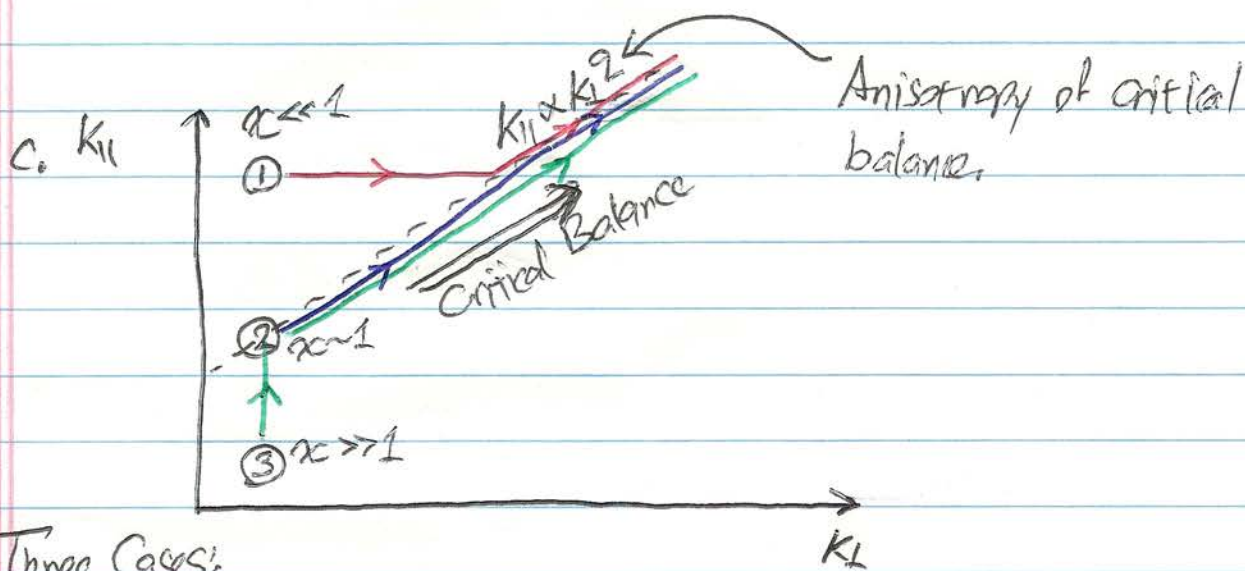 x<<1
C. K||
①
K|| ∝ K⊥^q
Anisotropy of critical
balance.
Critical Balance
② x~1
③ x>>1
K⊥
Three Cases: